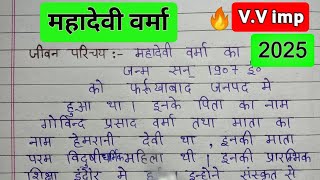 महादेवी वर्मा
V.V imp
2025
जीवन परिचय :- महादेवी वर्मा का
जन्म सन् 1907 ई०
को फर्रुखाबाद जनपद में
हुआ था। इनके पिता का नाम
गोविन्द प्रसाद वर्मा तथा माता का
नाम हेमरानी देवी था, इनकी माता
परम विदुषी धार्मिक महिला थी। इनकी प्रारम्भिक
शिक्षा इंदौर में इन्होंने संस्कृत से